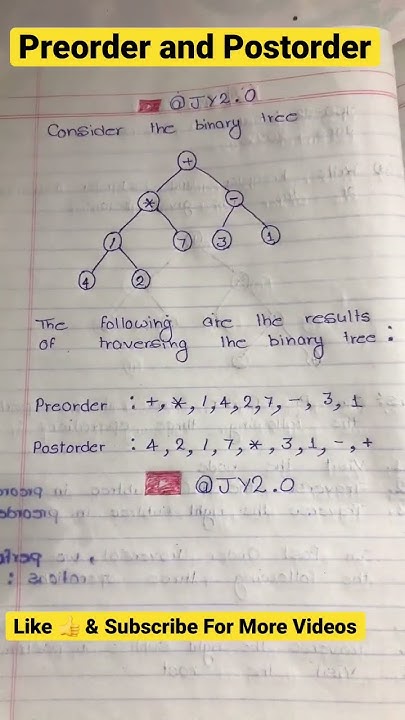 Preorder and Postorder
@JY2.0
Consider the binary tree
+
* -
/ 7 3 1
4 2
The following are the results
of traversing the binary tree :
Preorder : +, *, /, 4, 2, 7, -, 3, 1
Postorder : 4, 2, /, 7, *, 3, 1, -, +
@JY2.0
Like 👍 & Subscribe For More Videos